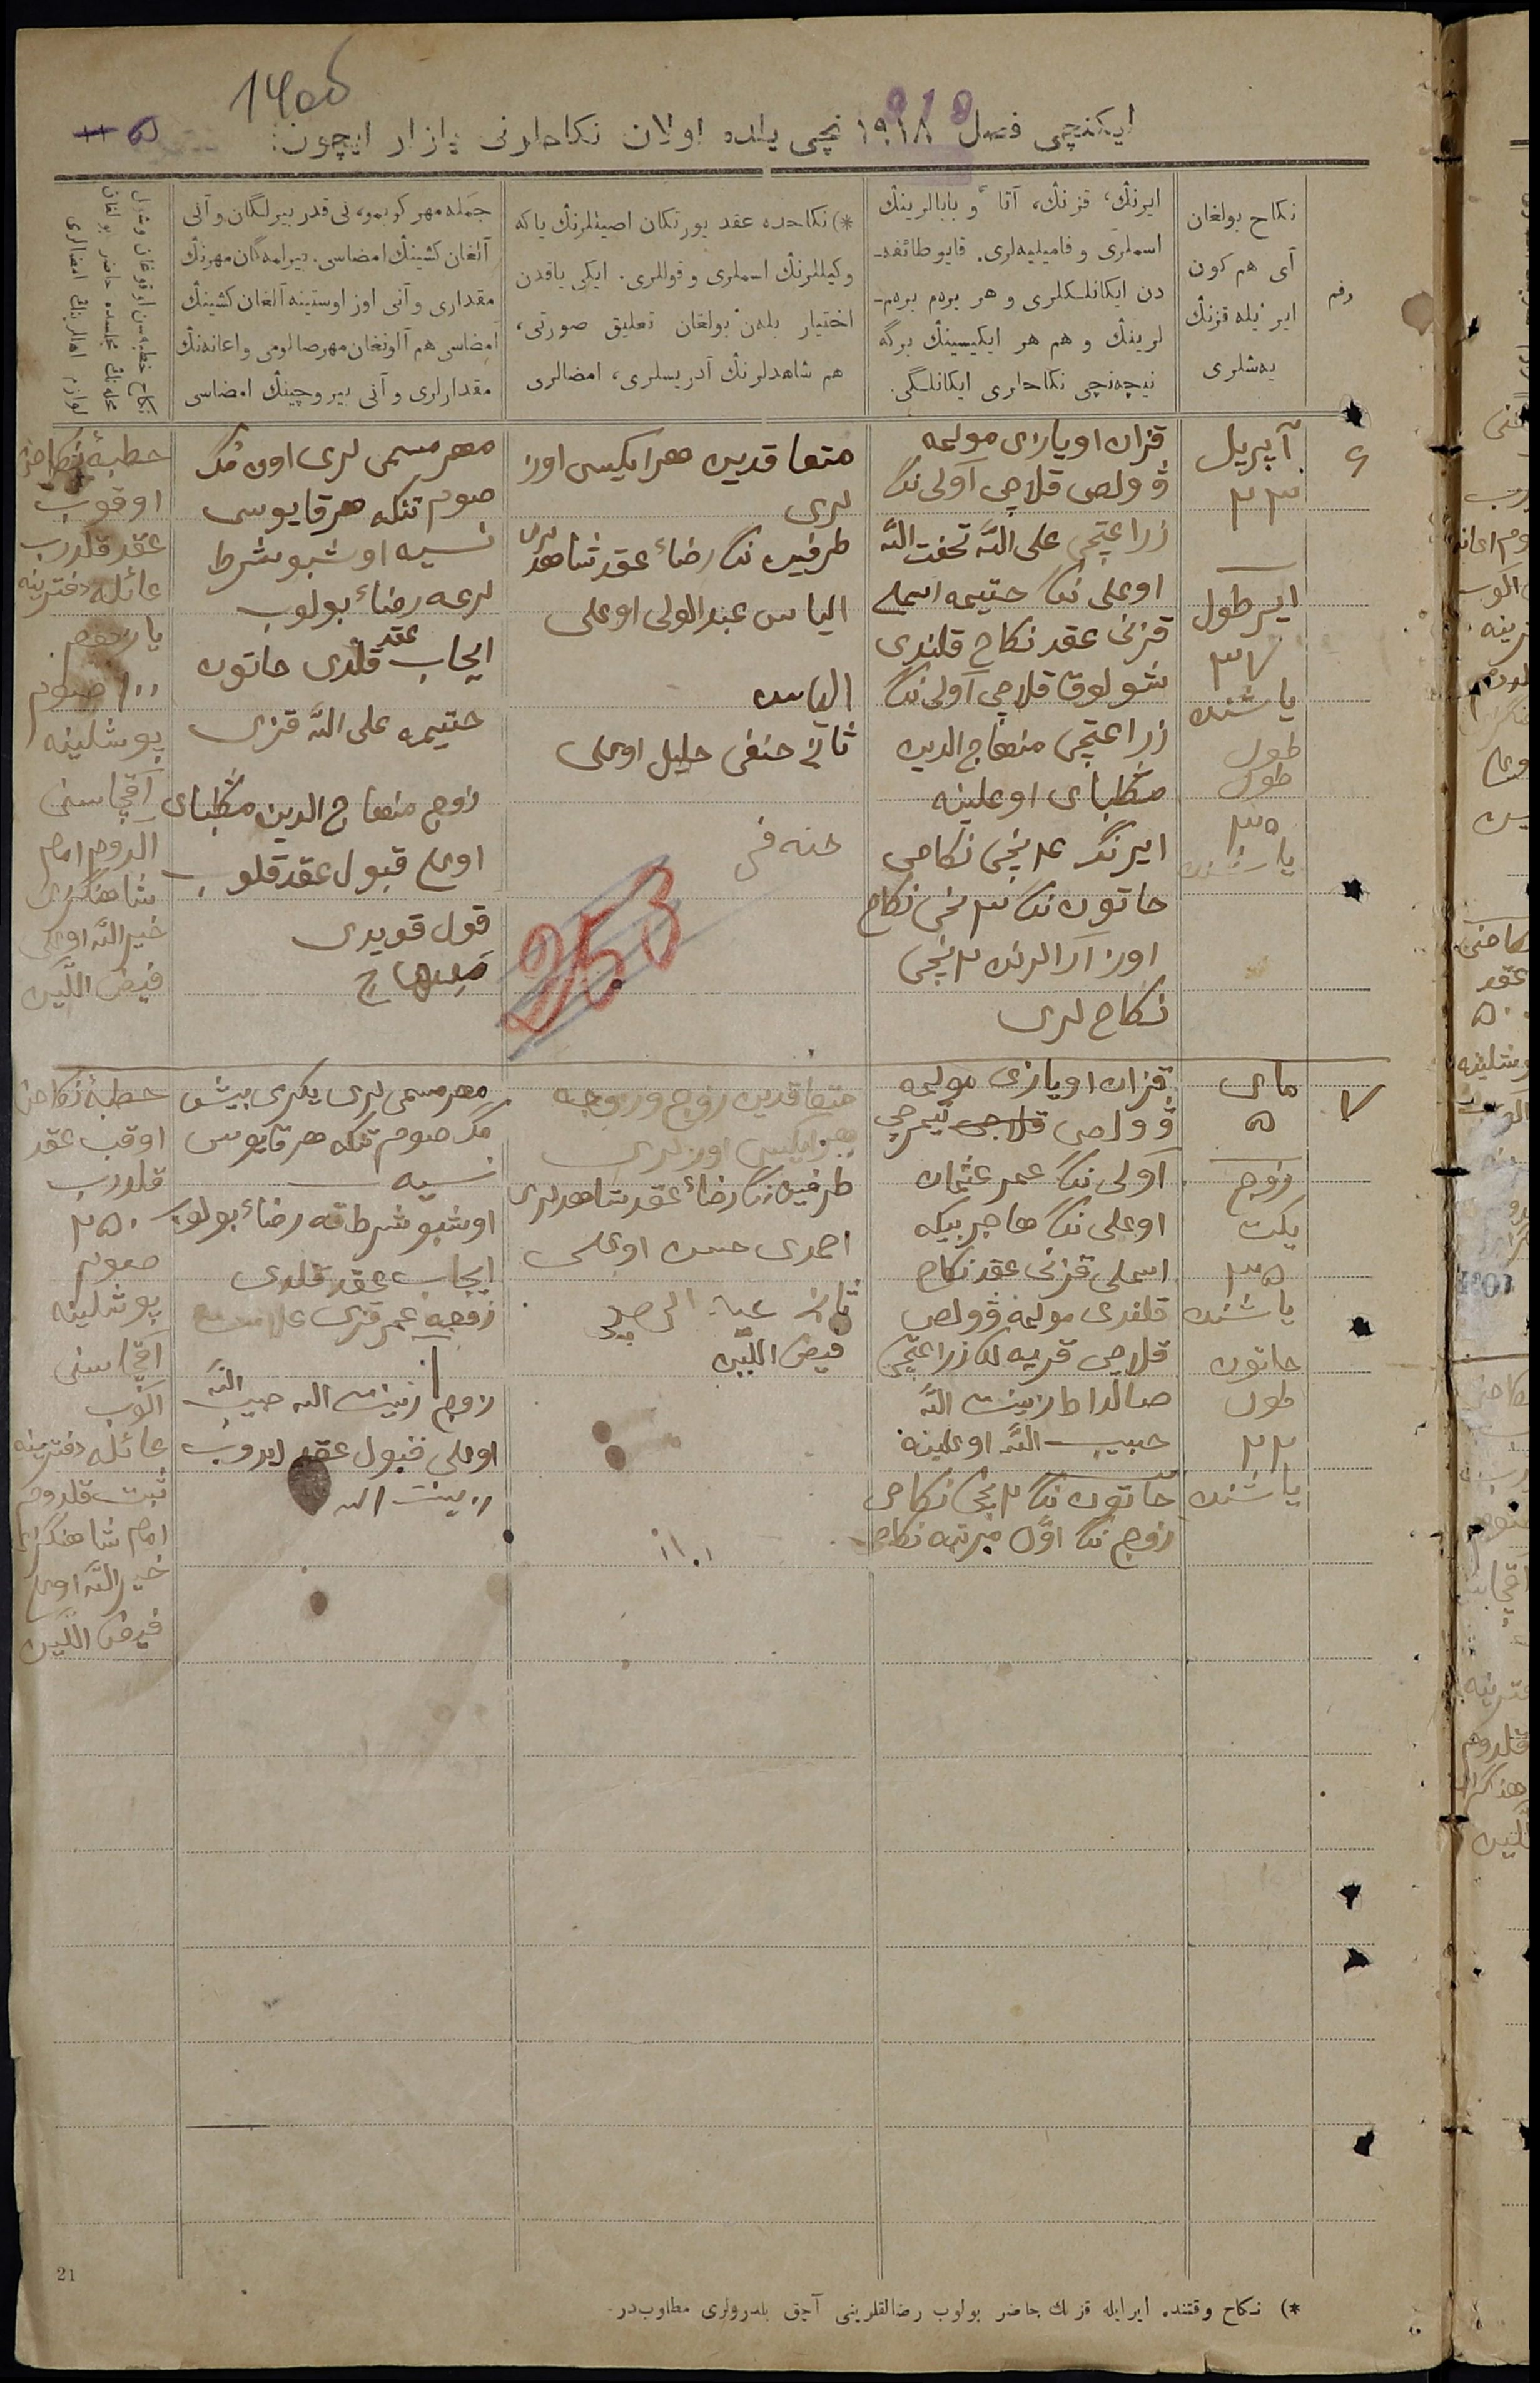 1400
ايكنچی فصل ۱۹۱۸ نچی يلده اولان نكاحلرنی يازار ايچون:
رقم
نكاح بولغان
آی هم كون
اير ئله قزنڭ
يه‌شلری
ايرنڭ، قزنڭ، آتا و بابالرينڭ
اسملری و فاميليه‌لری. قايو طائفه‌-
دن ايكانلكلری و هر بره‌م بره‌م-
لرينڭ و هم هر ايكيسينڭ برگه
نيچه‌نچی نكاحلری ايكانلگی.
*) نكاحده عقد يورتكان اصيللرنڭ ياكه
وكيللرنڭ اسملری و قوللری. ايكی ياقدن
اختيار بله‌ن بولغان تعليق صورتی،
هم شاهدلرنڭ آدريسلری، امضالری
جمله مهر كوبمو، نی قدر بيرلگان و آنی
آلغان كشينڭ امضاسی. بيرلمه‌گان مهرنڭ
مقداری و آنی اوز اوستينه آلغان كشينڭ
امضاسی هم آلونغان مهر صالومی و اعانه‌نڭ
مقدارلری و آنی بيروچينڭ امضاسی
نكاح خطبه‌سن اوقوغان
۶
آپريل
۲۳
اير طول
۳۷
ياشنده
طول
طول
۳۵
ياشنده
قزان اويازی مولمه
ڤولص قلاچی آولی نك
زراعتچی علی الله تحفت الله
اوغلی نك حتيمه اسملی
قزنی عقد نكاح قلندی
شولوق قلاچی آولی نك
زراعتچی منهاج الدين
منكلبای اوغلينه
ايرنك ۴ نچی نكاحی
خاتون نك ۳ نچی نكاح
اوز آرالرنده ۲ نچی
نكاح لری
متعاقدين هر ايكيسی اوز
لری
طرفين نك رضاء عقد شاهدلری
الياس عبد الولی اوغلی
الياس
ثانی حنفی خليل اوغلی
حنه فی
253
مهر مسمی لری اون مك
صوم تنكه هر قايوسی
نسيه اوشبو شرط
لرغه رضاء بولوب
ايجاب عقد قلدی خاتون
حتيمه علی الله قزی
زوج منهاج الدين منكلبای
اوغلی قبول عقد قلوب
قول قويدی
منهاج
خطبهٔ نكاحنی
اوقوب
عقد قلدرب
عائله دفترينه
يازدم
۱۰۰ صوم
بوشلينه
آقچاسنی
الدوم امام
شاهنكرای
خير الله اوغلی
فيض اللين
۷
مای
۵
زوج
يكت
۳۵
ياشنده
خاتون
طول
۲۲
ياشنده
قزان اويازی مولمه
ڤولص قلاچی تيمرچی
آولی نك عمر عثمان
اوغلی نك هاجر بيكه
اسملی قزنی عقد نكاح
قلندی مولمه ڤولص
قلاچی قريه لك زراعتچی
صالداط زينت الله
حبيب الله اوغلينه
خاتون نك ۲ نچی نكاحی
زوج نك اوّل مرتبه نكاحی
متعاقدين زوج و زوجه
هر ايكيسی اوزلری
طرفين نك رضاء عقد شاهدلری
احمدی حسن اوغلی
فيض اللين
مهر مسمی لری يكرمی بيش
مك صوم تنكه هر قايوسی
نسيه
اوشبو شرط قه رضاء بولوب
ايجاب عقد قلدی
زوجه عمر قزی
زوج زينت الله حبيب الله
اوغلی قبول عقد ايدوب
زينت الله
خطبهٔ نكاحنی
اوقب عقد
قلدرب
۲۵۰
صوم
بوشلينه
آقچاسنی
آلوب
عائله دفترينه
ثبت قلدوم
امام شاهنكرای
خير الله اوغلی
فيض اللين
*) نكاح وقتنده ايرايله قزنك حاضر بولوب رضالقلرينی آچق بلدرولری مطلوب‌در.
21